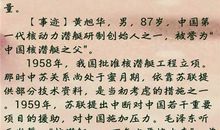 量。
【事迹】黄旭华，男，87岁，中国第
一代核动力潜艇研制创始人之一，被誉为
“中国核潜艇之父”。
1958年，我国批准核潜艇工程立项。
那时中苏关系尚处于蜜月期，依靠苏联提
供部分技术资料，是当初考虑的措施之
一。1959年，苏联提出中断对中国若干重要
项目的援助，对中国施加压力。毛泽东听